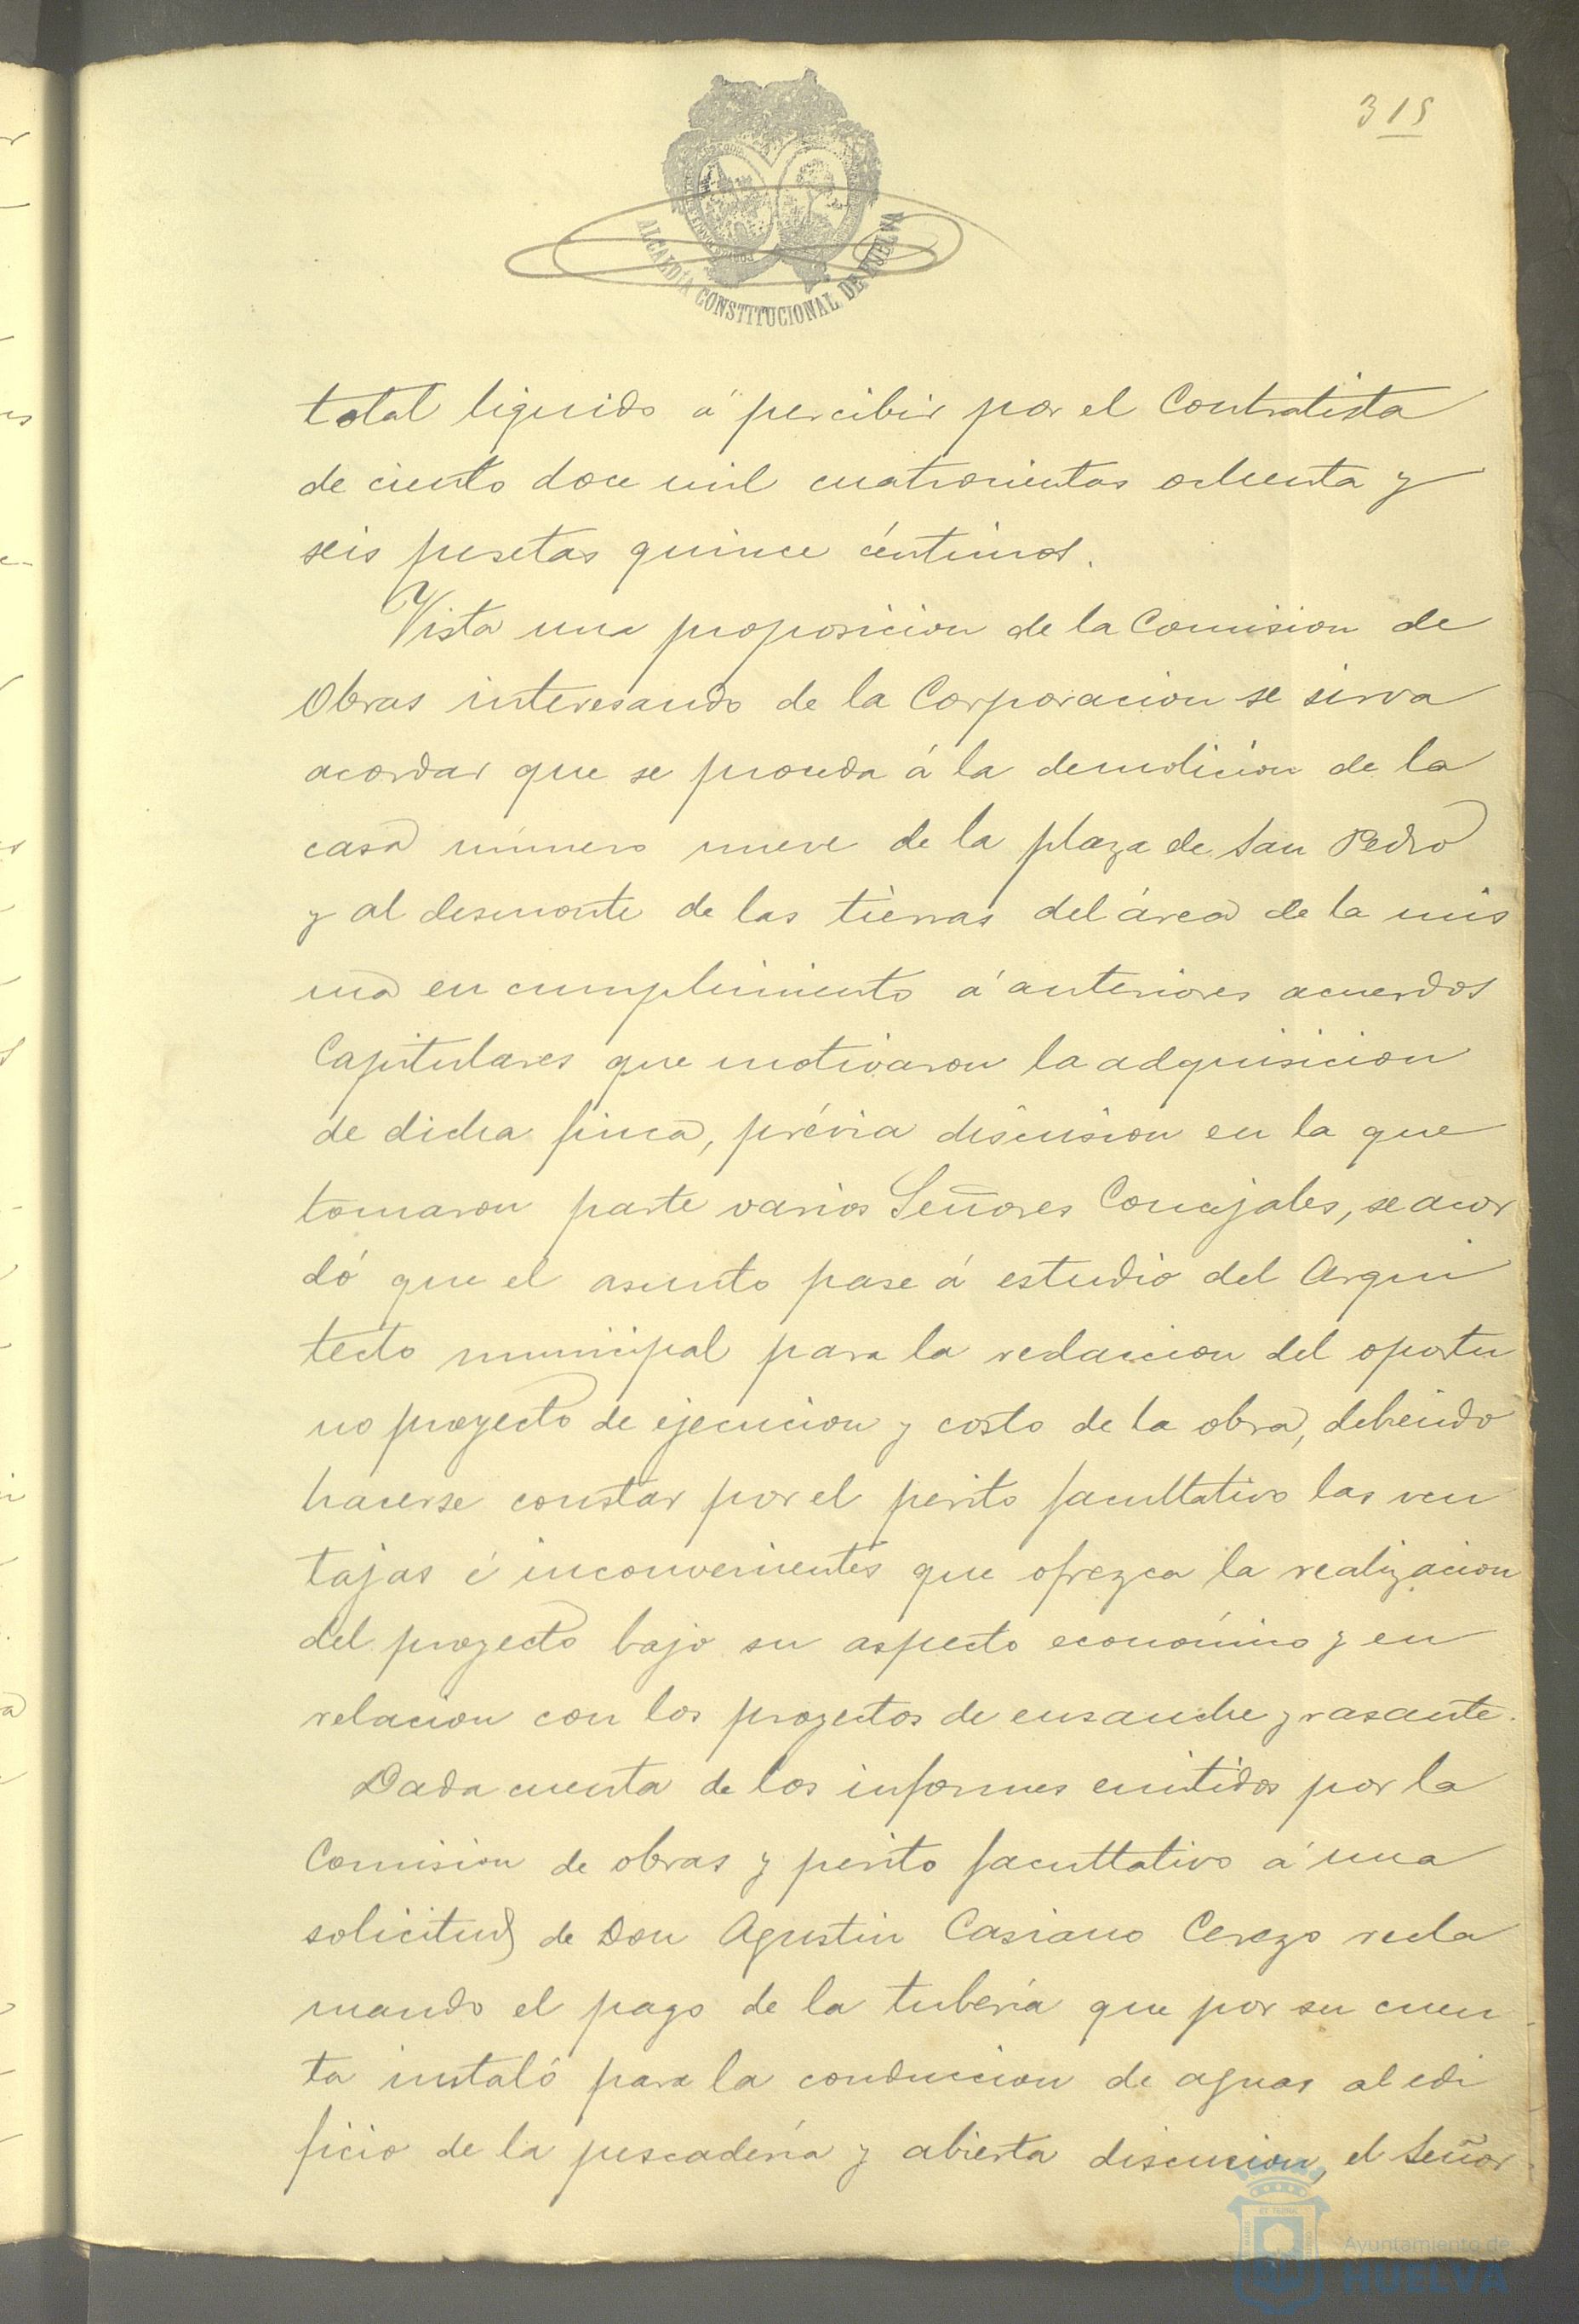 315
ALCALDÍA CONSTITUCIONAL DE HUELVA
total liquido á percibir por el Contratista
de ciento doce mil cuatrocientas ochenta y
seis pesetas quince céntimos.
Vista una proposicion de la Comision de
Obras interesando de la Corporacion se sirva
acordar que se proceda á la demolicion de la
casa número nueve de la plaza de San Pedro
y al desmonte de las tierras del área de la mis
ma en cumplimiento á anteriores acuerdos
Capitulares que motivaron la adquisicion
de dicha finca, prévia discusion en la que
tomaron parte varios Señores Concejales, se acor
dó que el asunto pase á estudio del Arqui
tecto municipal para la redaccion del oportu
no proyecto de ejecucion y costo de la obra, debiendo
hacerse constar por el perito facultativo las ven
tajas é inconvenientes que ofrezca la realizacion
del proyecto bajo su aspecto económico y en
relacion con los proyectos de ensanche y rasante.
Dada cuenta de los informes emitidos por la
Comision de obras y perito facultativo á una
solicitud de Don Agustin Casiano Cerezo recla
mando el pago de la tubería que por su cuen
ta instaló para la conduccion de aguas al edi
ficio de la pescadería y abierta discusion, el Señor
Ayuntamiento de
HUELVA